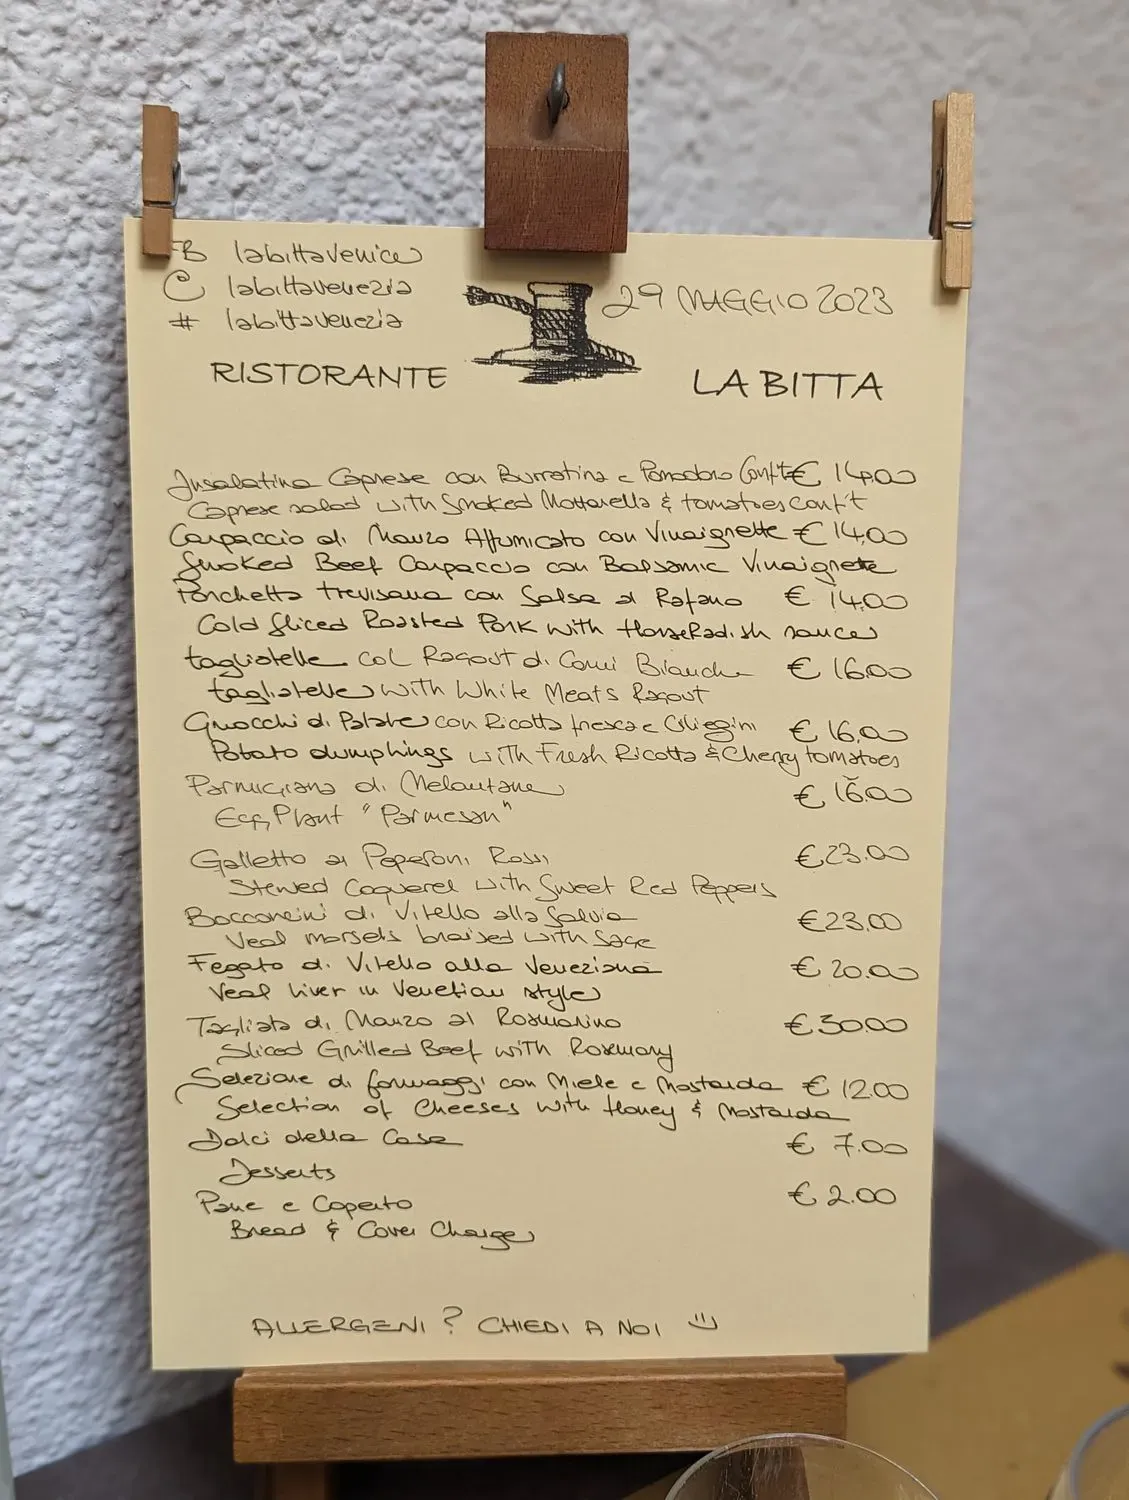 FB labittavenice
@ labittavenezia
# labittavenezia
29 MAGGIO 2023
RISTORANTE LA BITTA
Insalatina Caprese con Burratina e Pomodoro Confit € 14,00
Caprese salad with Smoked Mozzarella & tomatoes confit
Carpaccio di Manzo Affumicato con Vinaignette € 14,00
Smoked Beef Carpaccio con Balsamic Vinaignete
Porchetta trevisana con Salsa al Rafano € 14,00
Cold Sliced Roasted Pork with HorseRadish sauce
tagliatelle col Ragout di Carni Bianche € 16,00
tagliatelle with White Meats Ragout
Gnocchi di Patate con Ricotta fresca e Ciliegini € 16,00
Potato dumphings with Fresh Ricotta & Cherry tomatoes
Parmigiana di Melanzane € 16,00
EggPlant "Parmesan"
Galletto ai Peperoni Rossi €23.00
Stewed Coquerel with Sweet Red Peppers
Bocconcini di Vitello alla Salvia €23.00
Veal morsels braised with Sage
Fegato di Vitello alla Veneziana € 20.00
Veal Liver in Venetian style
Tagliata di Manzo al Rosmarino €30.00
Sliced Grilled Beef with Rosemary
Selezione di formaggi con Miele e Mostarda € 12.00
Selection of Cheeses with Honey & Mostarda
Dolci della Casa € 7.00
Desserts
Pane e Coperto € 2.00
Bread & Cover Charge
ALLERGENI? CHIEDI A NOI